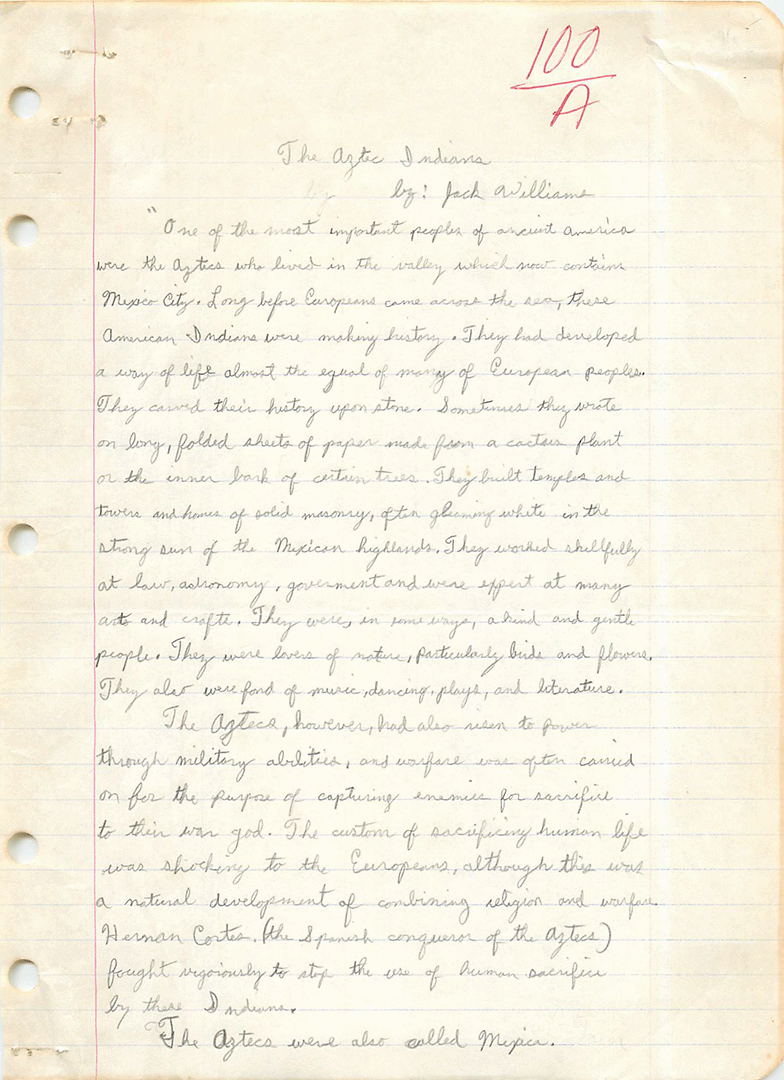 100
A
The Aztec Indians
by by: Jack Williams
"One of the most important peoples of ancient America
were the Aztecs who lived in the valley which now contains
Mexico City. Long before Europeans came across the sea, these
American Indians were making history. They had developed
a way of life almost the equal of many of European peoples.
They carved their history upon stone. Sometimes they wrote
on long, folded sheets of paper made from a cactus plant
or the inner bark of certin trees. They built temples and
towers and homes of solid masonry, often gleaming white in the
strong sun of the Mexican highlands. They worked skillfully
at law, astronomy, goverment and were expert at many
arts and crafts. They were, in some ways, a kind and gentle
people. They were lovers of nature, particularly birds and flowers.
They also were fond of music, dancing, plays, and literature.
The Aztecs, however, had also risen to power
through military abilities, and warfare was often carried
on for the purpose of capturing enemies for sacrifice
to their war god. The custom of sacrificing human life
was shocking to the Europeans, although this was
a natural development of combining religion and warfare.
Hernan Cortes. (the Spanish conqueror of the Aztecs)
fought vigoriously to stop the use of human sacrifice
by these Indians.
"The Aztecs were also called Mexica.